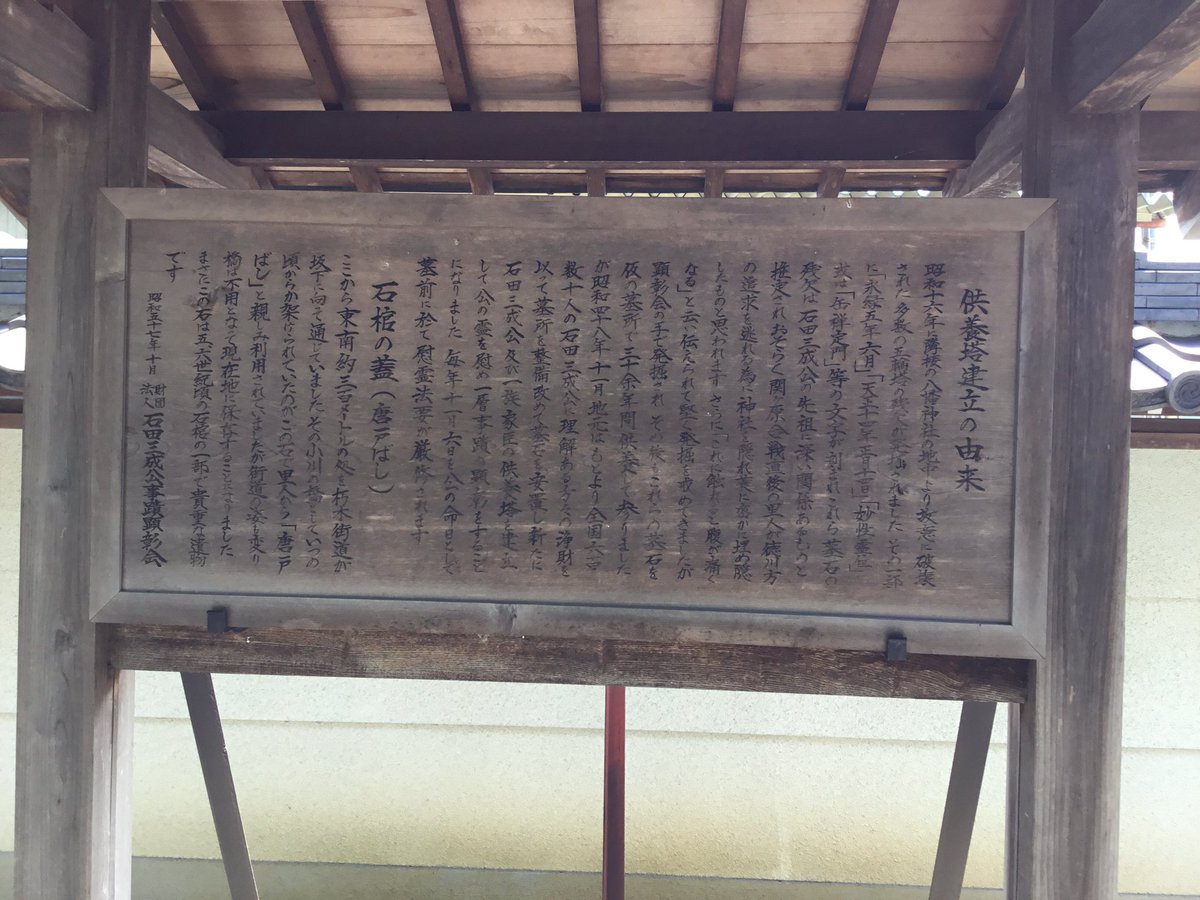 供養塔建立の由来
昭和十六年に隣接の八幡神社の地中より故意に破壊
された多数の五輪塔の残欠が発掘されました その一部
に「永禄五年六月」「天正十四年
或は「岳禅定門」等の文字が刻まれこれら墓石の
残欠は石田三成公の先祖に深い関係あるものと
推定されおそらく関ヶ原合戦直後の里人が徳川方
の追求を逃れる為に神社を隠れ蓑に源が埋め隠
したものと思われます さらに「これに触ると腹が痛く
なる」と云い伝えられて堅く発掘を戒めてきましたが
顕彰会の手で発掘され その後もこれらの墓石を
仮の墓所で三十余年間供養して参りました
が昭和四十八年十一月地元はもとより全国六百
数十人の石田三成公に理解ある方々の浄財を
以って墓所を整備改め墓石を安置し新たに
石田三成公及び一族家臣の供養塔を建立
して公の霊を慰め一層事蹟の顕彰をすること
になりました 毎年十一月六日を公の命日として
墓前に於て慰霊法要が厳修されます
石棺の蓋(唐戸はし)
ここから東南約三〇メートルの処を朽木街道が
坂下に向って通じていました その小川の橋としていつの
頃からか架けられていたのがこの石で里人から「唐戸
ばし」と親しみ利用されていましたが街道の姿も変り
橋は不用となって現在地に保存することになりました
まさにこの石は五、六世紀頃の石棺の一部で貴重な遺物
です
昭和五十二年十月 財団法人 石田三成公事蹟顕彰会